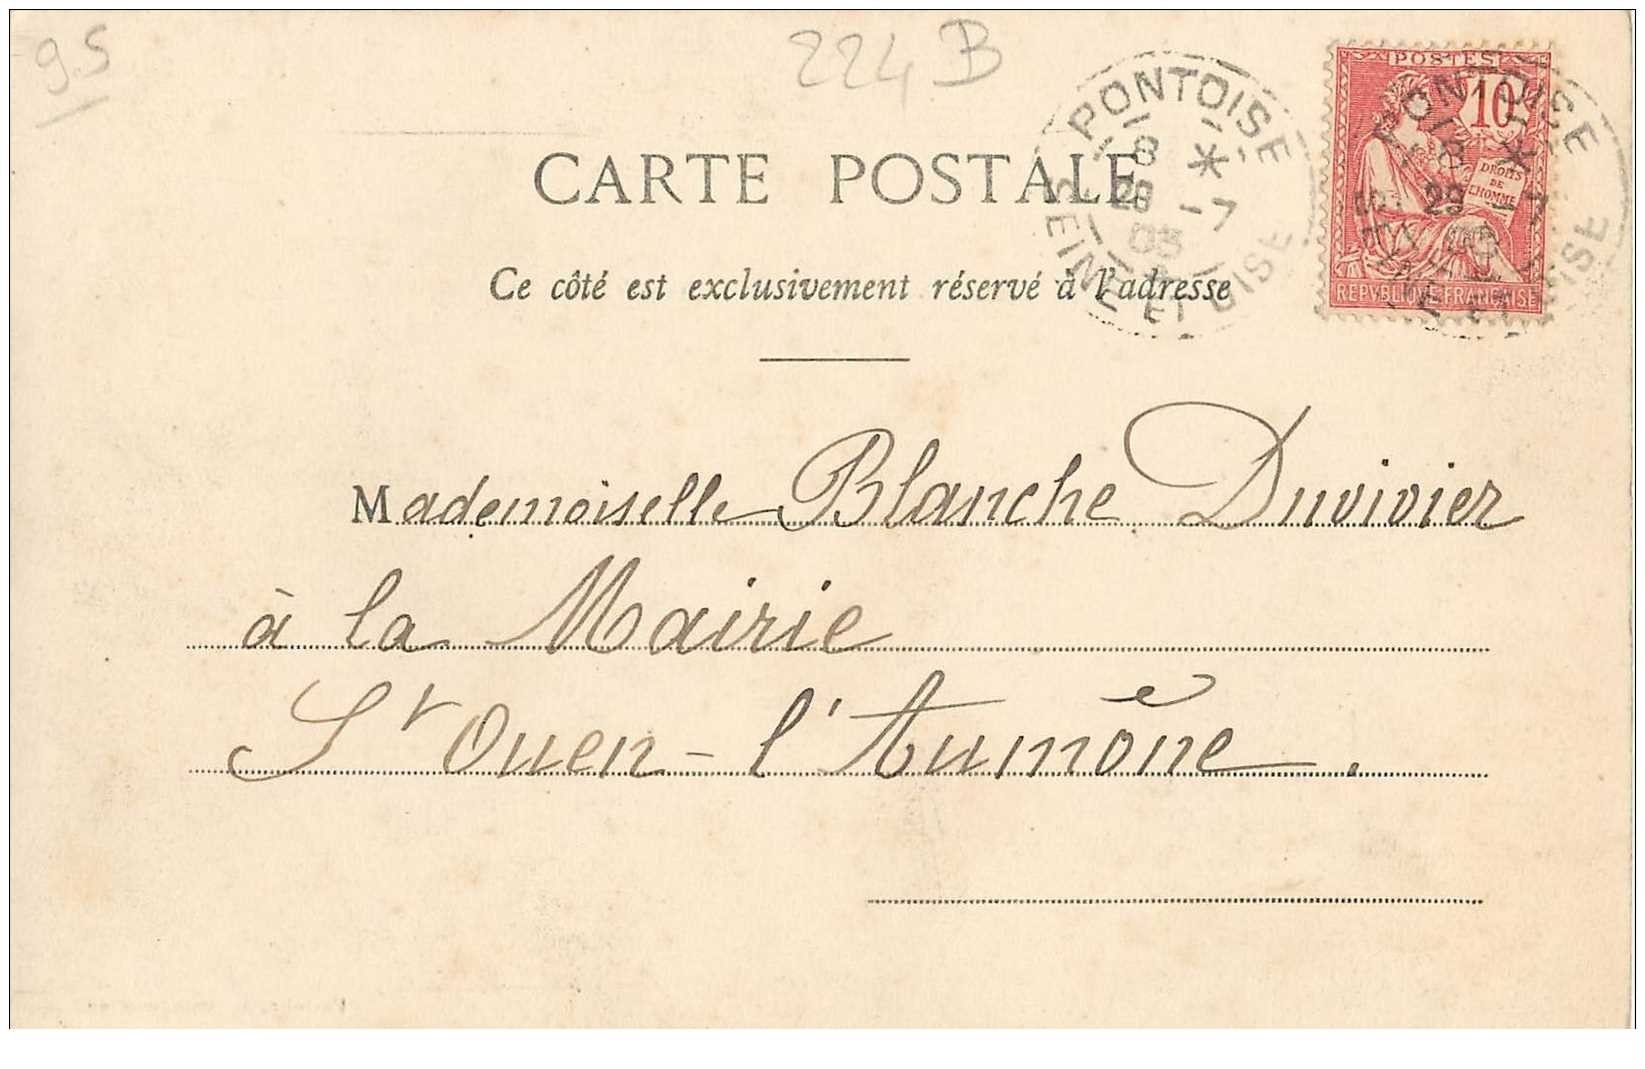 95
224 B
PONTOISE
8 *
29 -7
03
SEINE ET OISE
POSTES
10
DROITS
DE
L'HOMME
REPVBLIQVE FRANÇAISE
PONTOISE
29 -7
SEINE ET OISE
CARTE POSTALE
Ce côté est exclusivement réservé à l'adresse
Mademoiselle Blanche Duvivier
à la Mairie
St Ouen-l'Aumône.